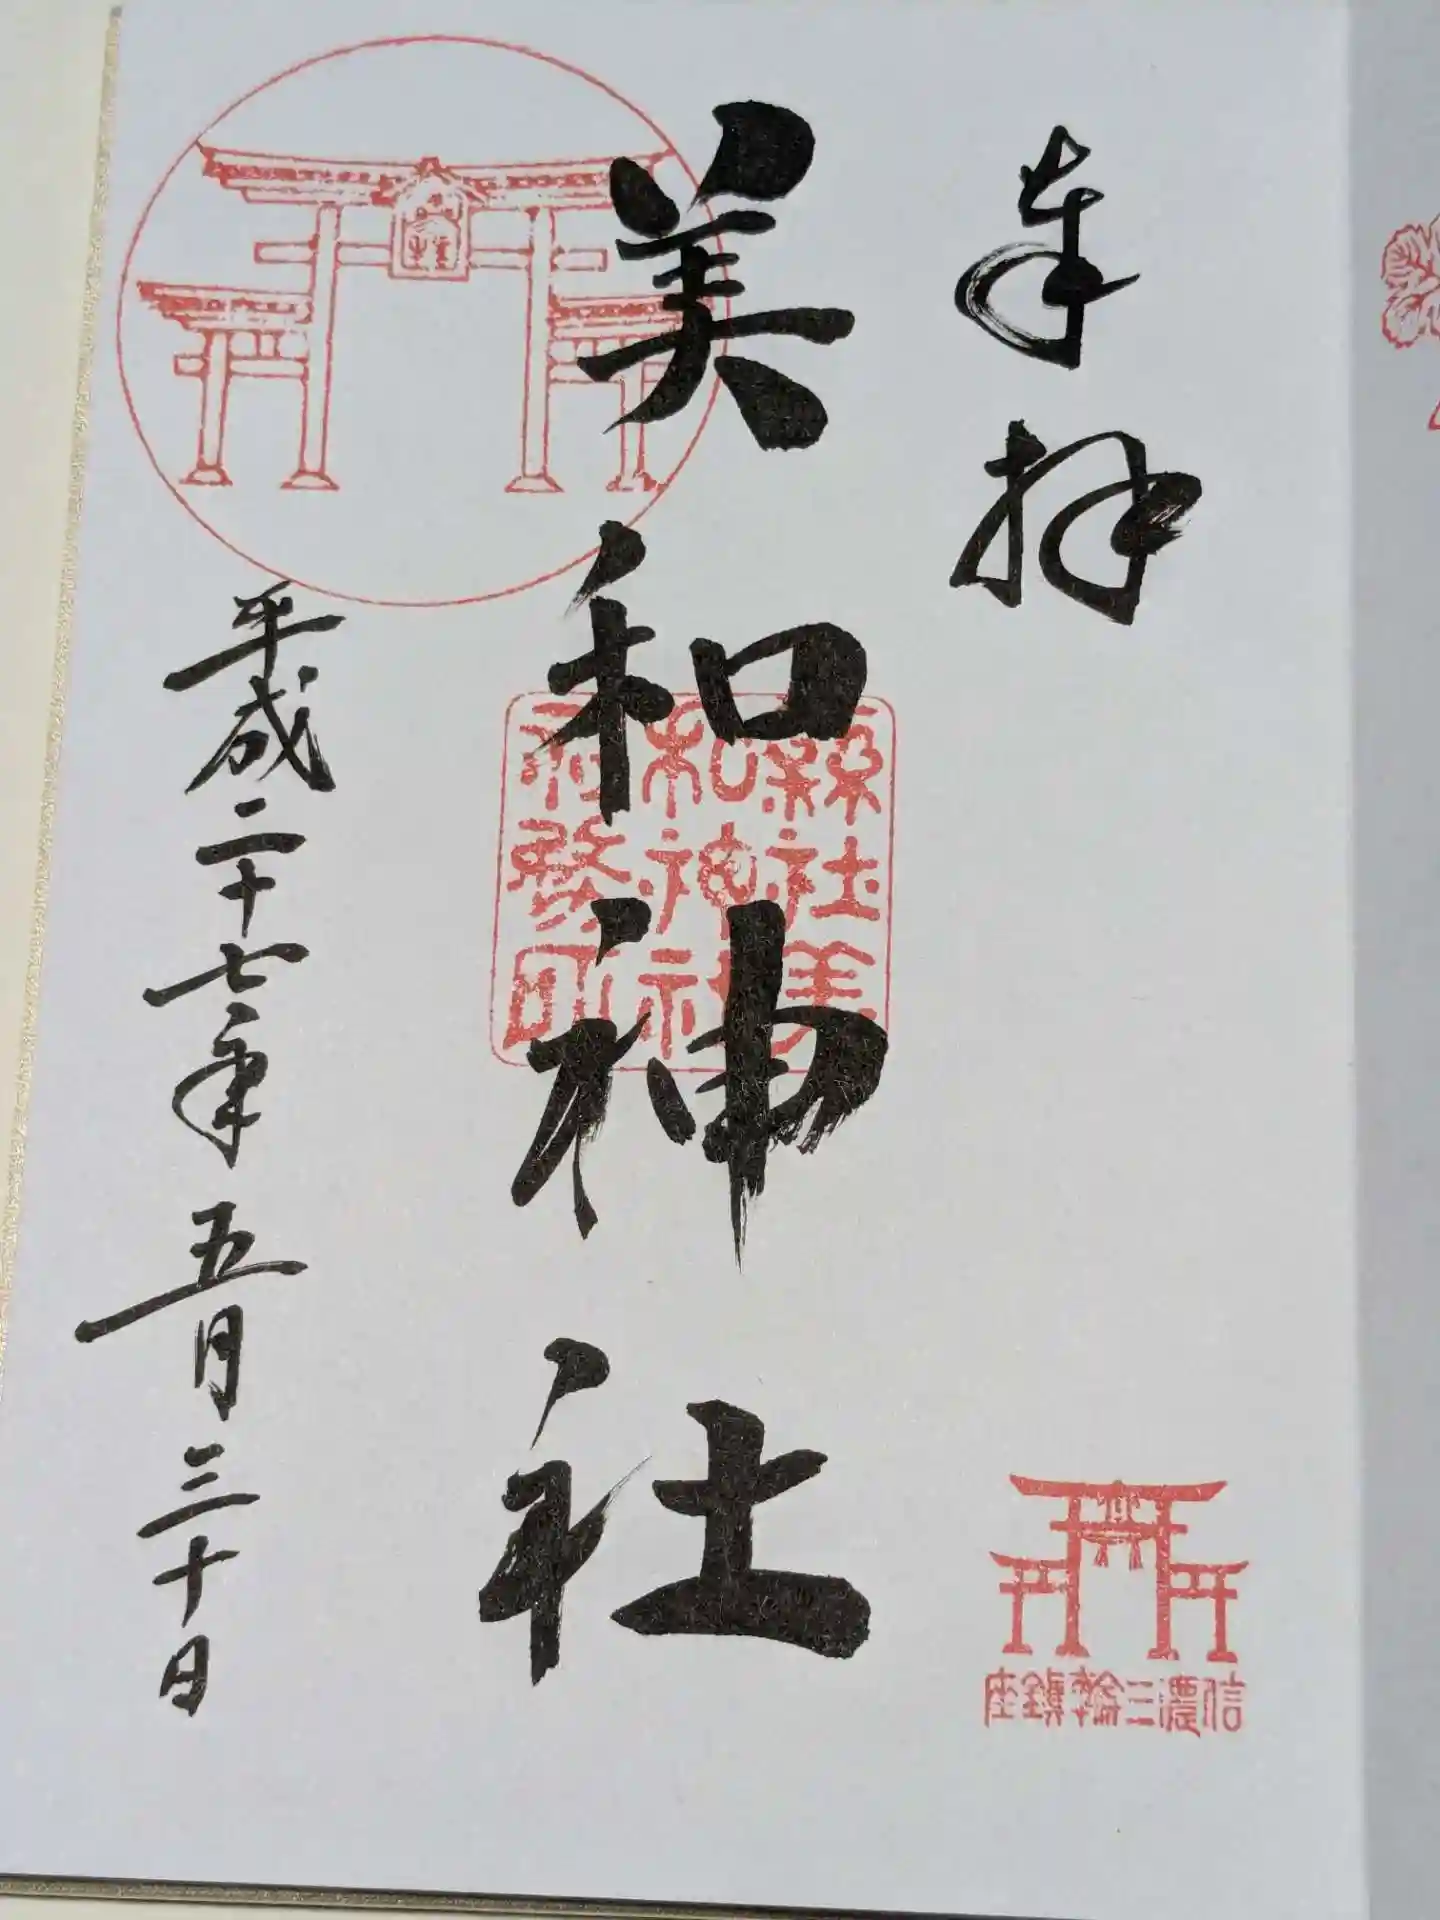 奉拝
美和神社
縣社美
和神社
平成二十七年五月三十日
信濃三輪鎮座